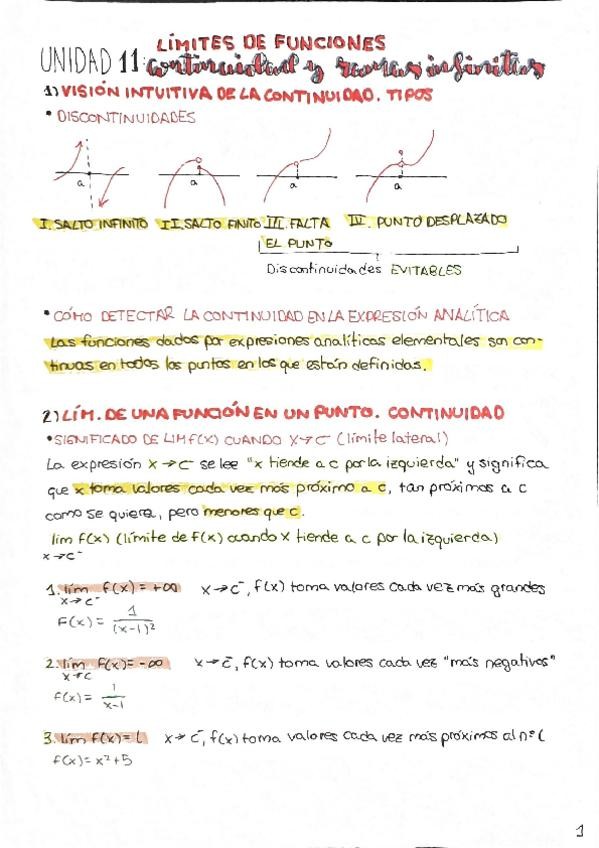 LÍMITES DE FUNCIONES
UNIDAD 11: continuidad y ramas infinitas
1) VISIÓN INTUITIVA DE LA CONTINUIDAD. TIPOS
• DISCONTINUIDADES
a a a a
I. SALTO INFINITO II. SALTO FINITO III. FALTA EL PUNTO IV. PUNTO DESPLAZADO
Discontinuidades EVITABLES
• CÓMO DETECTAR LA CONTINUIDAD EN LA EXPRESIÓN ANALÍTICA
Las funciones dadas por expresiones analíticas elementales son con-
tinuas en todos los puntos en los que están definidas.
2) LÍM. DE UNA FUNCIÓN EN UN PUNTO. CONTINUIDAD
• SIGNIFICADO DE LIM f(x) CUANDO X→C⁻ (límite lateral)
La expresión x→c⁻ se lee "x tiende a c por la izquierda" y significa
que x toma valores cada vez más próximo a c, tan próximos a c
como se quiera, pero menores que c.
lim f(x) (límite de f(x) cuando x tiende a c por la izquierda)
x→c⁻
1. lím f(x) = +∞ x→c⁻, f(x) toma valores cada vez más grandes
x→c⁻
F(x) = 1/(x-1)²
2. lím f(x) = -∞ x→c⁻, f(x) toma valores cada vez "más negativos"
x→c
f(x) = 1/x-1
3. lím f(x) = l x→c⁻, f(x) toma valores cada vez más próximos al nº l
f(x) = x²+5
1